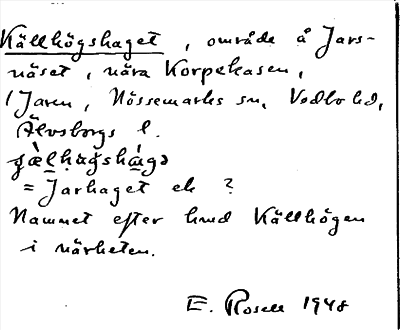 Källhögshaget, område å Jars-
näset, nära Korpekasen,
i Jaren, Nössemarks sn, Vedbo hd,
Älvsborgs l.
= Jarhaget ek ?
Namnet efter hmd Källhögen
i närheten.
E. Rosell 1948